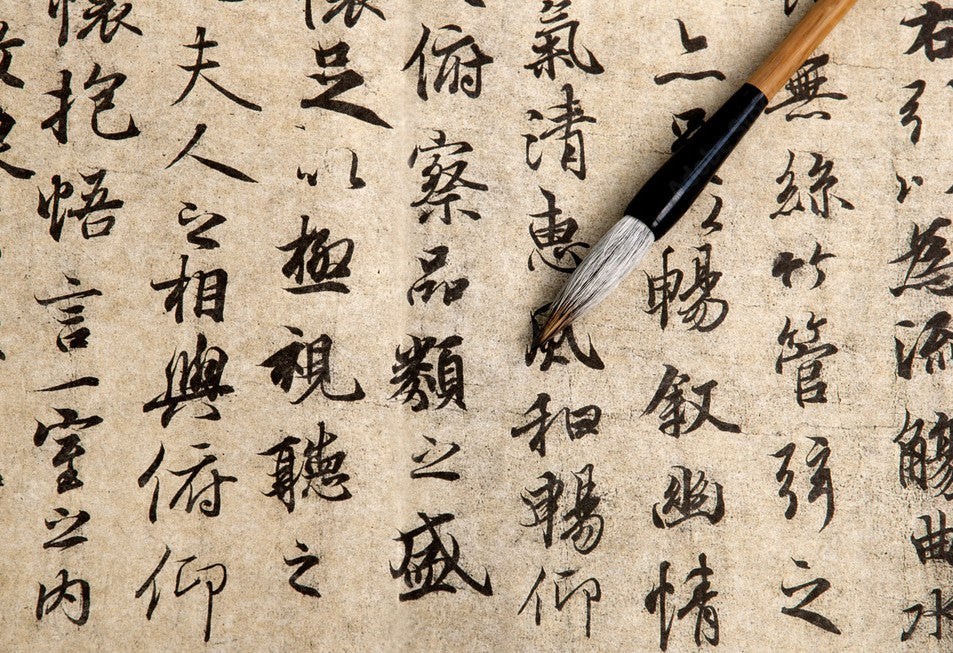 右引以為流觴曲水
無絲竹管弦之
亦足以暢叙幽情
氣清惠風和暢仰
俯察品類之盛
懷足以極視聽之
夫人之相與俯仰
懷抱悟言一室之内